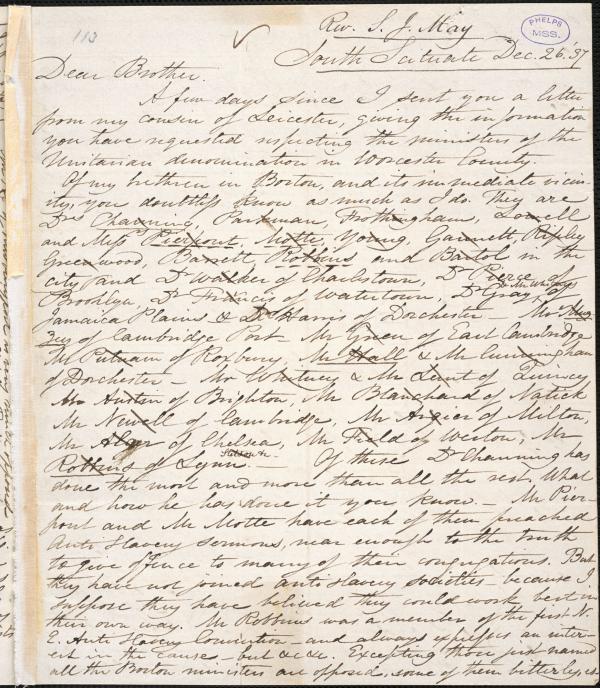 113
Rev. S. J. May
PHELPS
MSS.
South Scituate Dec. 26. '37
Dear Brother.
A few days since I sent you a letter
from my cousin of Leicester, giving the information
you have requested respecting the ministers of the
Unitarian denomination in Worcester County.
Of my brethren in Boston, and its immediate vicin-
ity, you doubtless know as much as I do. They are
Drs Channing, Parkman, Frothingham, Lowell
and Messrs Pierpont, Motte, Young, Gannett, Ripley
Greenwood, Barrett Robbins and Bartol in the
city and Dr Walker of Charlestown, Dr Pierce of
Brooklyn, Dr Francis of Watertown, Dr Gray of
Jamaica Plains & Dr Harris of Dorchester - Mr
of Cambridge Port - Mr Green of East Cambridge
Mr Putnam of Roxbury, Mr Hall & Mr Cunningham
of Dorchester - Mr Whitney & Mr Lunt of Quincy
Mr Austin of Brighton, Mr Blanchard of Natick
Mr Newell of Cambridge, Mr Angier of Milton,
Mr Alger of Chelsea, Mr Field of Weston, Mr
Robbins of Lynn. Of these Dr Channing has
done the most and more than all the rest. What
and how he has done it you know - Mr Pier-
pont and Mr Motte have each of them preached
Anti Slavery sermons, near enough to the truth
to give offence to many of their congregations. But
they have not joined antislavery societies because I
suppose they have believed they could work best in
their own way. Mr Robbins was a member of the first N.
E. Anti Slavery Convention - and always expresses an inter-
est in the cause but &c &c. Excepting those just named
all the Boston ministers are opposed, some of them bitterly, es